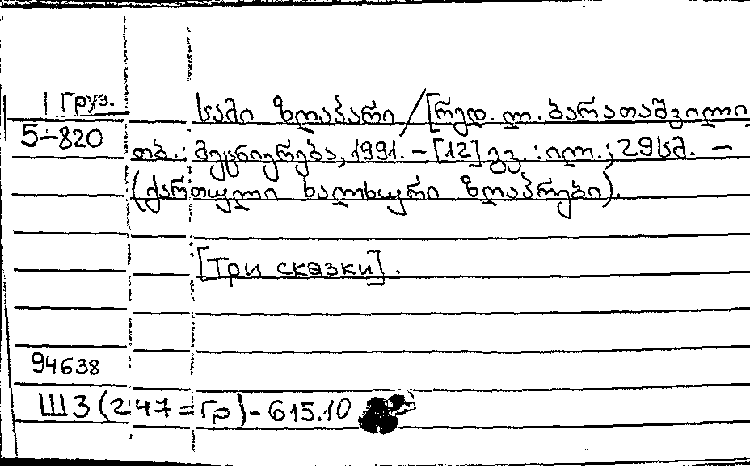 1 Груз.
სამი ზღაპარი / [რედ. ლ. ბარათაშვილი
5-820
თბ.: მეცნიერება, 1991. - [12] გვ. : ილ. ; 29 სმ. -
(ქართული ხალხური ზღაპრები).
[Три сказки].
94638
Ш3(247=Гр)-615.10